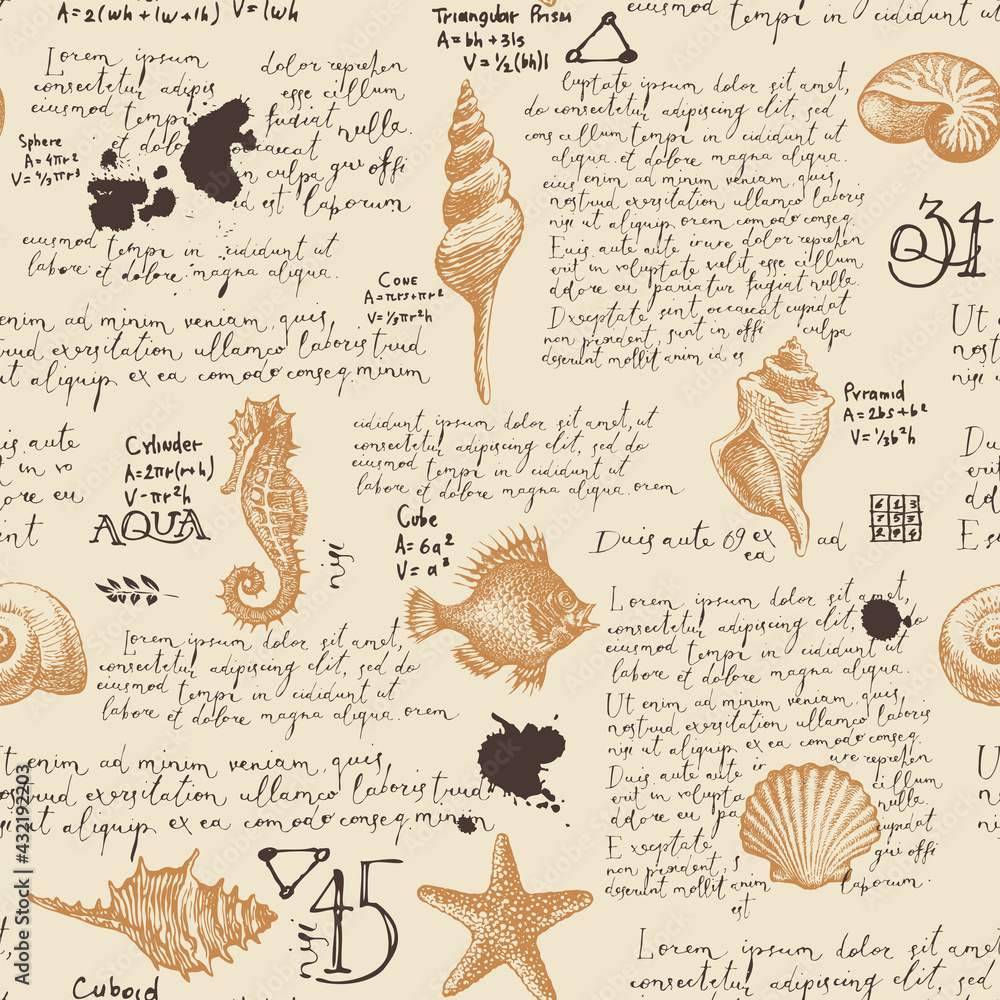 A=2(wh+lw+lh) V=lwh
Triangular Prism
A=bh+3ls
V=½(bh)l
eiusmod tempi in cididunt ut
labore et dolore magna aliqua.
Lorem ipsum
consectetur adipis
eiusmod tempi
et dolo
dolor reprehen
esse cillum
fugiat nulla.
occaecat
in culpa qui offi
id est laborum
Sphere
A=4πr²
V=4/3πr³
eiusmod tempi in cididunt ut
labore et dolore magna aliqua.
luptate ipsum dolor sit amet,
do consectetur adipiscing elit, sed
cons cillum tempi in cididunt ut
aliqua. et dolore magna aliqua.
eius enim ad minim veniam, quis
nostrud exersitation ullamco laboris
nisi ut aliquip orem comodo conseq.
Euis aute aute irure dolor reprehen
erit in voluptate velit esse cillum
dolore eu pariatur fugiat nulla.
Dxceptate sint, occaecat cupidat
non proident, sunt in offi culpa
deserunt mollit anim id es
34
Cone
A=πrs+πr²
V=⅓πr²h
enim ad minim veniam, quis
trud exersitation ullamco laboris trud
ut aliquip ex ea comodo conseq.minim
Ut
nost
nisi
Pyramid
A=2bs+b²
V=⅓b²h
Cylinder
A=2πr(r+h)
V-πr²h
AQUA
uis aute
t in vo
olore eu
int
cididunt ipsum dolor sit amet,
consectetur adipiscing elit, sed do
eiusmod tempi in cididunt ut
labore et dolore magna aliqua. orem
Duis
erit
dolo
E se
Cube
A=6a²
V=a³
nisi
6 1 3
7 5 3
9 8 4
Duis aute 69 ex
ea
ad
Lorem ipsum dolor sit amet,
consectetur adipiscing elit, sed do
eiusmod tempi in cididunt ut
labore et dolore magna aliqua. orem
Lorem ipsum dolor sit amet,
consectetur adipiscing elit, do
eiusmod tempi in cididunt ut
labore et dolore magna aliqua.
Ut enim ad minim veniam, quis
nostrud exersitation ullamco laboris
nisi ut aliquip ex ea comodo conseq.
Duis aute aute ir ure reprehen
erit in volupta cillum
dolore eu pa nulla.
Exceptate cupidat
non proident, s qui offi
deserunt mollit anim laborum.
est
t enim ad minim veniam, quis
strud exersitation ullamco laboris trud
si ut aliquip ex ea comodo conseq.minim
nisi
45
Cuboid
Lorem ipsum dolor sit amet,
consectetur adipiscing elit, sed
Adobe Stock | #432192203
Adobe Stock